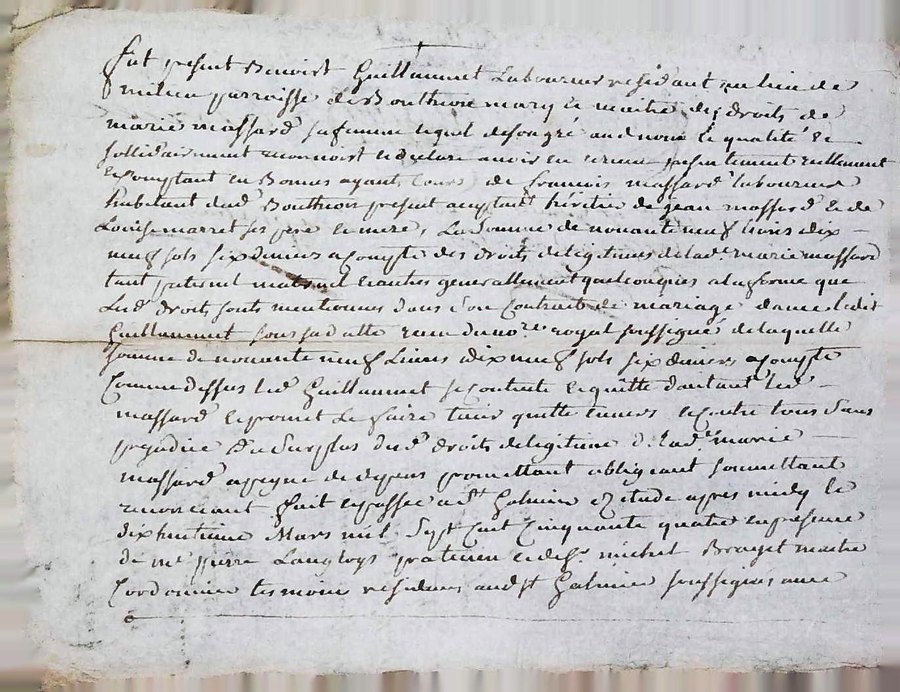 fut present Benoist Guillaumet Laboureur residant au lieu de
milieu parroisse de Bouthion mary et maitre des droits de
marie massard sa femme lequel de son gré aud nom et qualité et
sollidairement reconnoist et declare avoir eu et receu presentement reellement
et comptant en Bonnes ayants cours de francois massard laboureur
habitant dud Bouthion present acceptant heritier de jean massard et de
Louise marret ses pere et mere, La Somme de nonante neuf livres dix
neuf sols six deniers a Compte des droits de legitimes de lade marie massard
tant paternel maternel et autres generallement quelconques a la forme que
Lesd droits sont mentionnes dans Son Contract de mariage d'avec ledit
Guillaumet sous sad atte receu du nore royal soussigné de laquelle
somme de nonante neuf Livres dix neuf sols six deniers a Compte
Comme dessus led Guillaumet se Contente et quitte d'autant led
massard et promet Le faire tenir quitte envers et Contre tous Sans
prejudice Du Surplus dud droits de legitime de lade marie
massard a peyne de depens promettant obligeant soumettant
renonceant fait et passé a st Galmier ez etude apres midy le
dix huitieme Mars mil Sept Cent Cinquante quatre en presence
de me pierre Langloys praticien et de sr michel Brayet maitre
Cordonnier tesmoins residants aud st Galmier soussignés avec